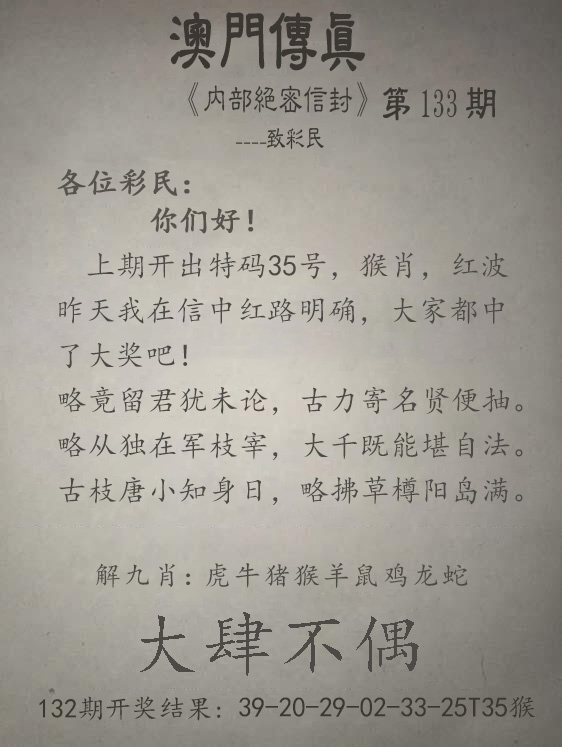 澳門傳眞
《内部絕密信封》第133期
----致彩民
各位彩民：
你们好！
上期开出特码35号，猴肖，红波
昨天我在信中红路明确，大家都中
了大奖吧！
略竟留君犹未论，古力寄名贤便抽。
略从独在军枝宰，大千既能堪自法。
古枝唐小知身日，略拂草樽阳岛满。
解九肖：虎牛猪猴羊鼠鸡龙蛇
大肆不偶
132期开奖结果：39-20-29-02-33-25T35猴